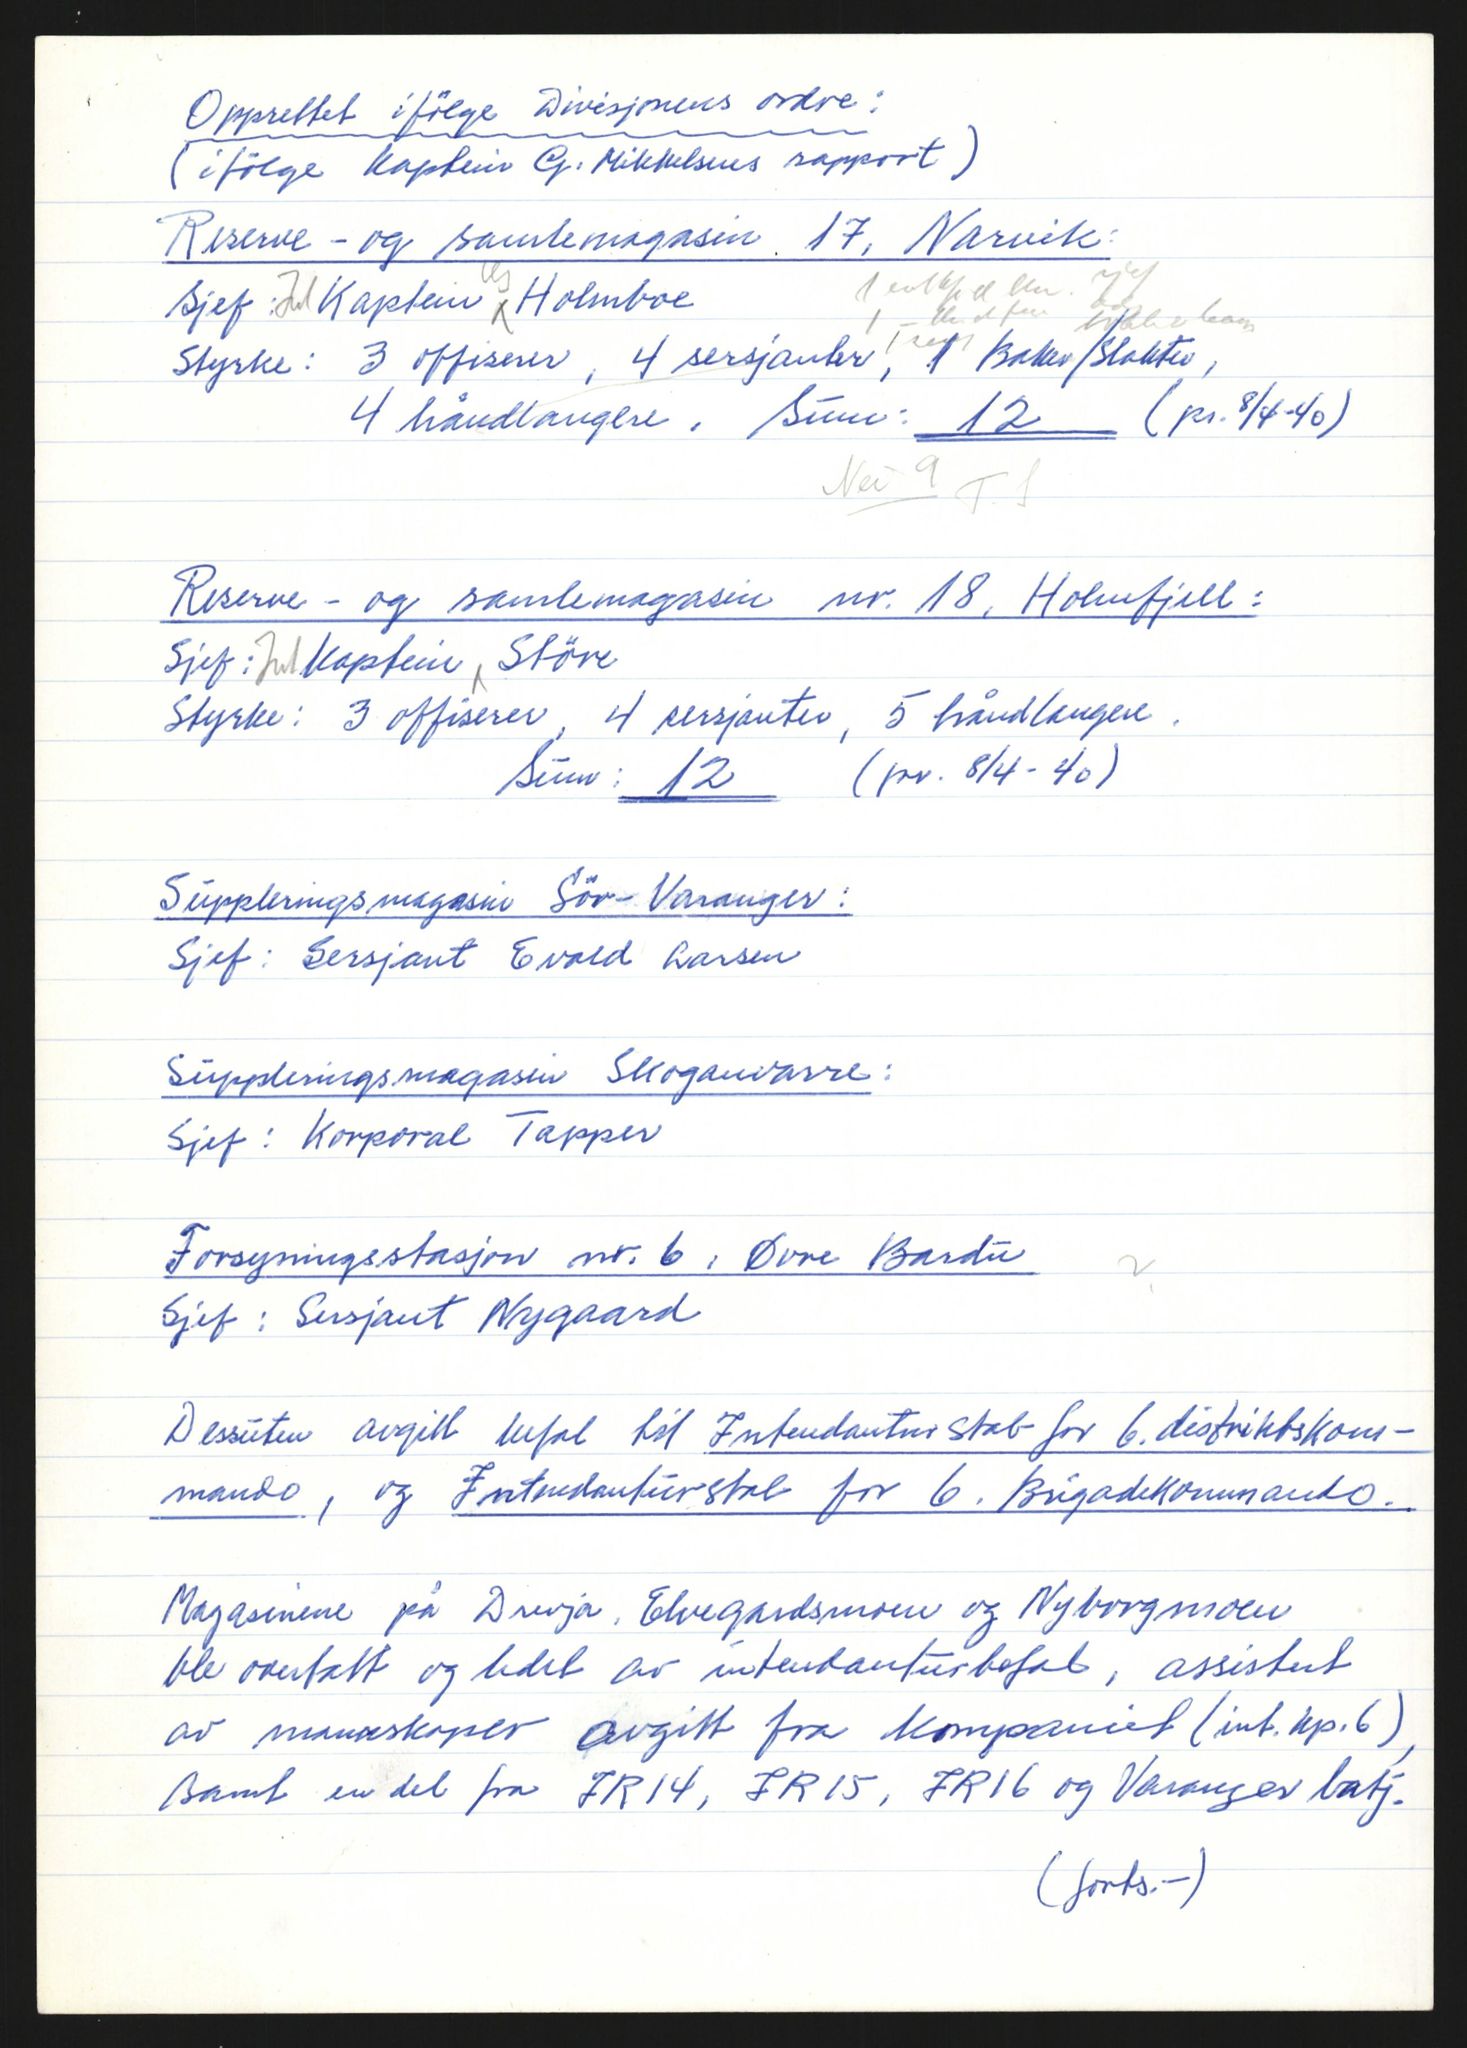 Opprettet ifölge Divisjonens ordre:
(ifölge Kaptein G. Mikkelsens rapport)
Reserve- og samlemagasin 17, Narvik:
Sjef: Int Kaptein Holmboe
Styrke: 3 offiserer, 4 sersjanter, 1 Baker/Slakter,
4 håndlangere. Sum: 12 (pr. 8/4-40)
Nei 9
Reserve- og samlemagasin nr. 18, Holmfjell:
Sjef: Int Kaptein Störe
Styrke: 3 offiserer, 4 sersjanter, 5 håndlangere.
Sum: 12 (pr. 8/4-40)
Suppleringsmagasin Sör-Varanger:
Sjef: Sersjant Evald Larsen
Suppleringsmagasin Skoganvarre:
Sjef: Korporal Tapper
Forsyningsstasjon nr. 6, Øvre Bardu
Sjef: Sersjant Nygaard
Dessuten avgitt befal til Intendanturstab for 6. distriktskom-
mando, og Intendanturstab for 6. Brigadekommando.
Magasinene på Drevja, Elvegardsmoen og Nyborgmoen
ble overtatt og ledet av intendanturbefal, assistert
av mannskaper avgitt fra kompaniet (int.kp.6),
samt en del fra IR14, IR15, IR16 og Varanger batj.
(forts.-)